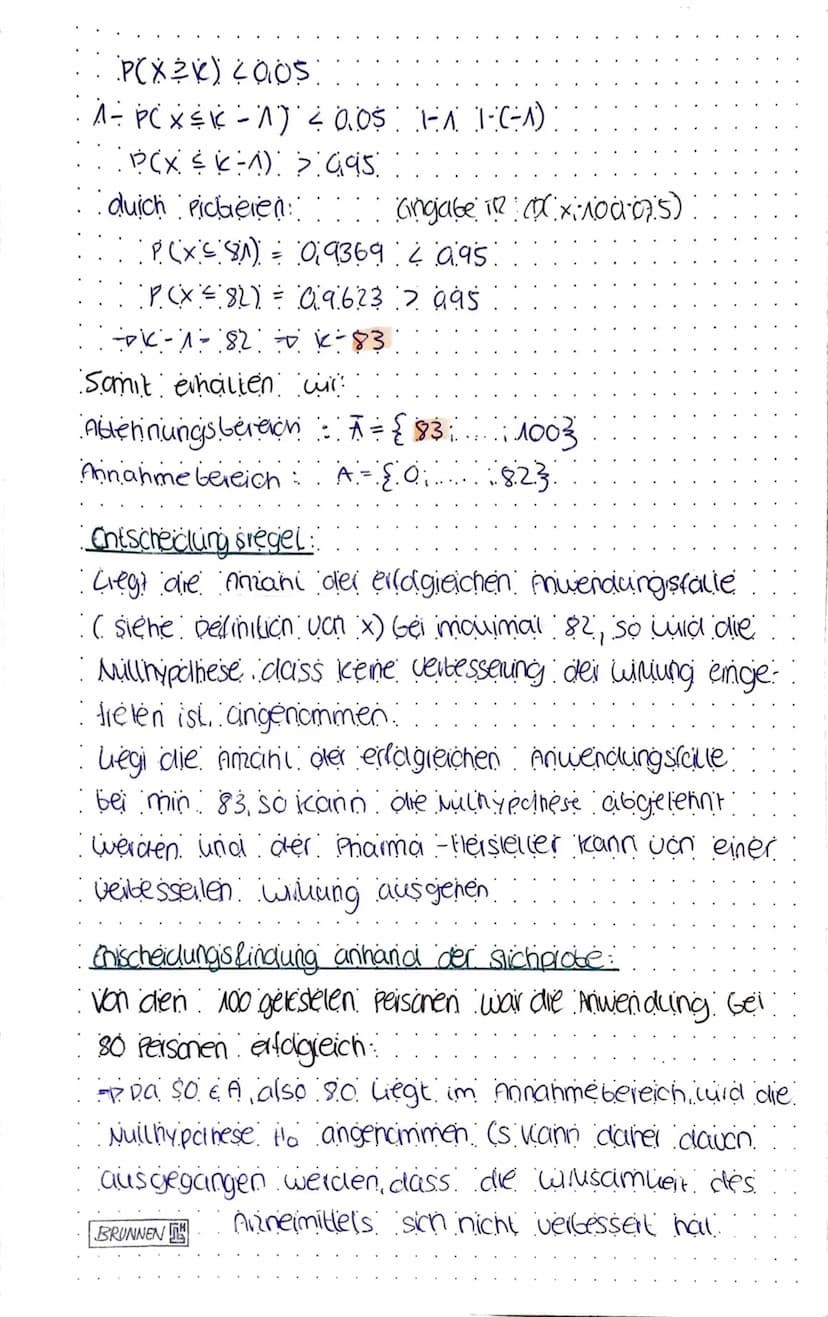 P(X ≥ k) < 0,05
1 - P(X ≤ k - 1) < 0,05 |-1 |·(-1)
P(X ≤ k-1) > 0,95
durch Probieren: Eingabe in (x; 100; 0,75)
P(X ≤ 81) = 0,9369 < 0,95
P(X ≤ 82) = 0,9623 > 0,95
→ k - 1 = 82 → k = 83
Somit erhalten wir:
Ablehnungsbereich: Ā = {83; ....; 100}
Annahmebereich: A = {0; ..... 82}
Entscheidungsregel:
Liegt die Anzahl der erfolgreichen Anwendungsfälle
(siehe Definition von X) bei maximal 82, so wird die
Nullhypothese, dass keine Verbesserung der Wirkung einge-
treten ist, angenommen.
Liegt die Anzahl der erfolgreichen Anwendungsfälle
bei min. 83, so kann die Nullhypothese abgelehnt
werden und der Pharma-Hersteller kann von einer
verbesserten Wirkung ausgehen
Entscheidungsfindung anhand der Stichprobe:
Von den 100 getesteten Personen war die Anwendung bei
80 Personen erfolgreich:
→ Da 80 ∈ A, also 80 liegt im Annahmebereich, wird die
Nullhypothese H₀ angenommen. Es kann daher davon
ausgegangen werden, dass die Wirksamkeit des
Arzneimittels sich nicht verbessert hat.
BRUNNEN